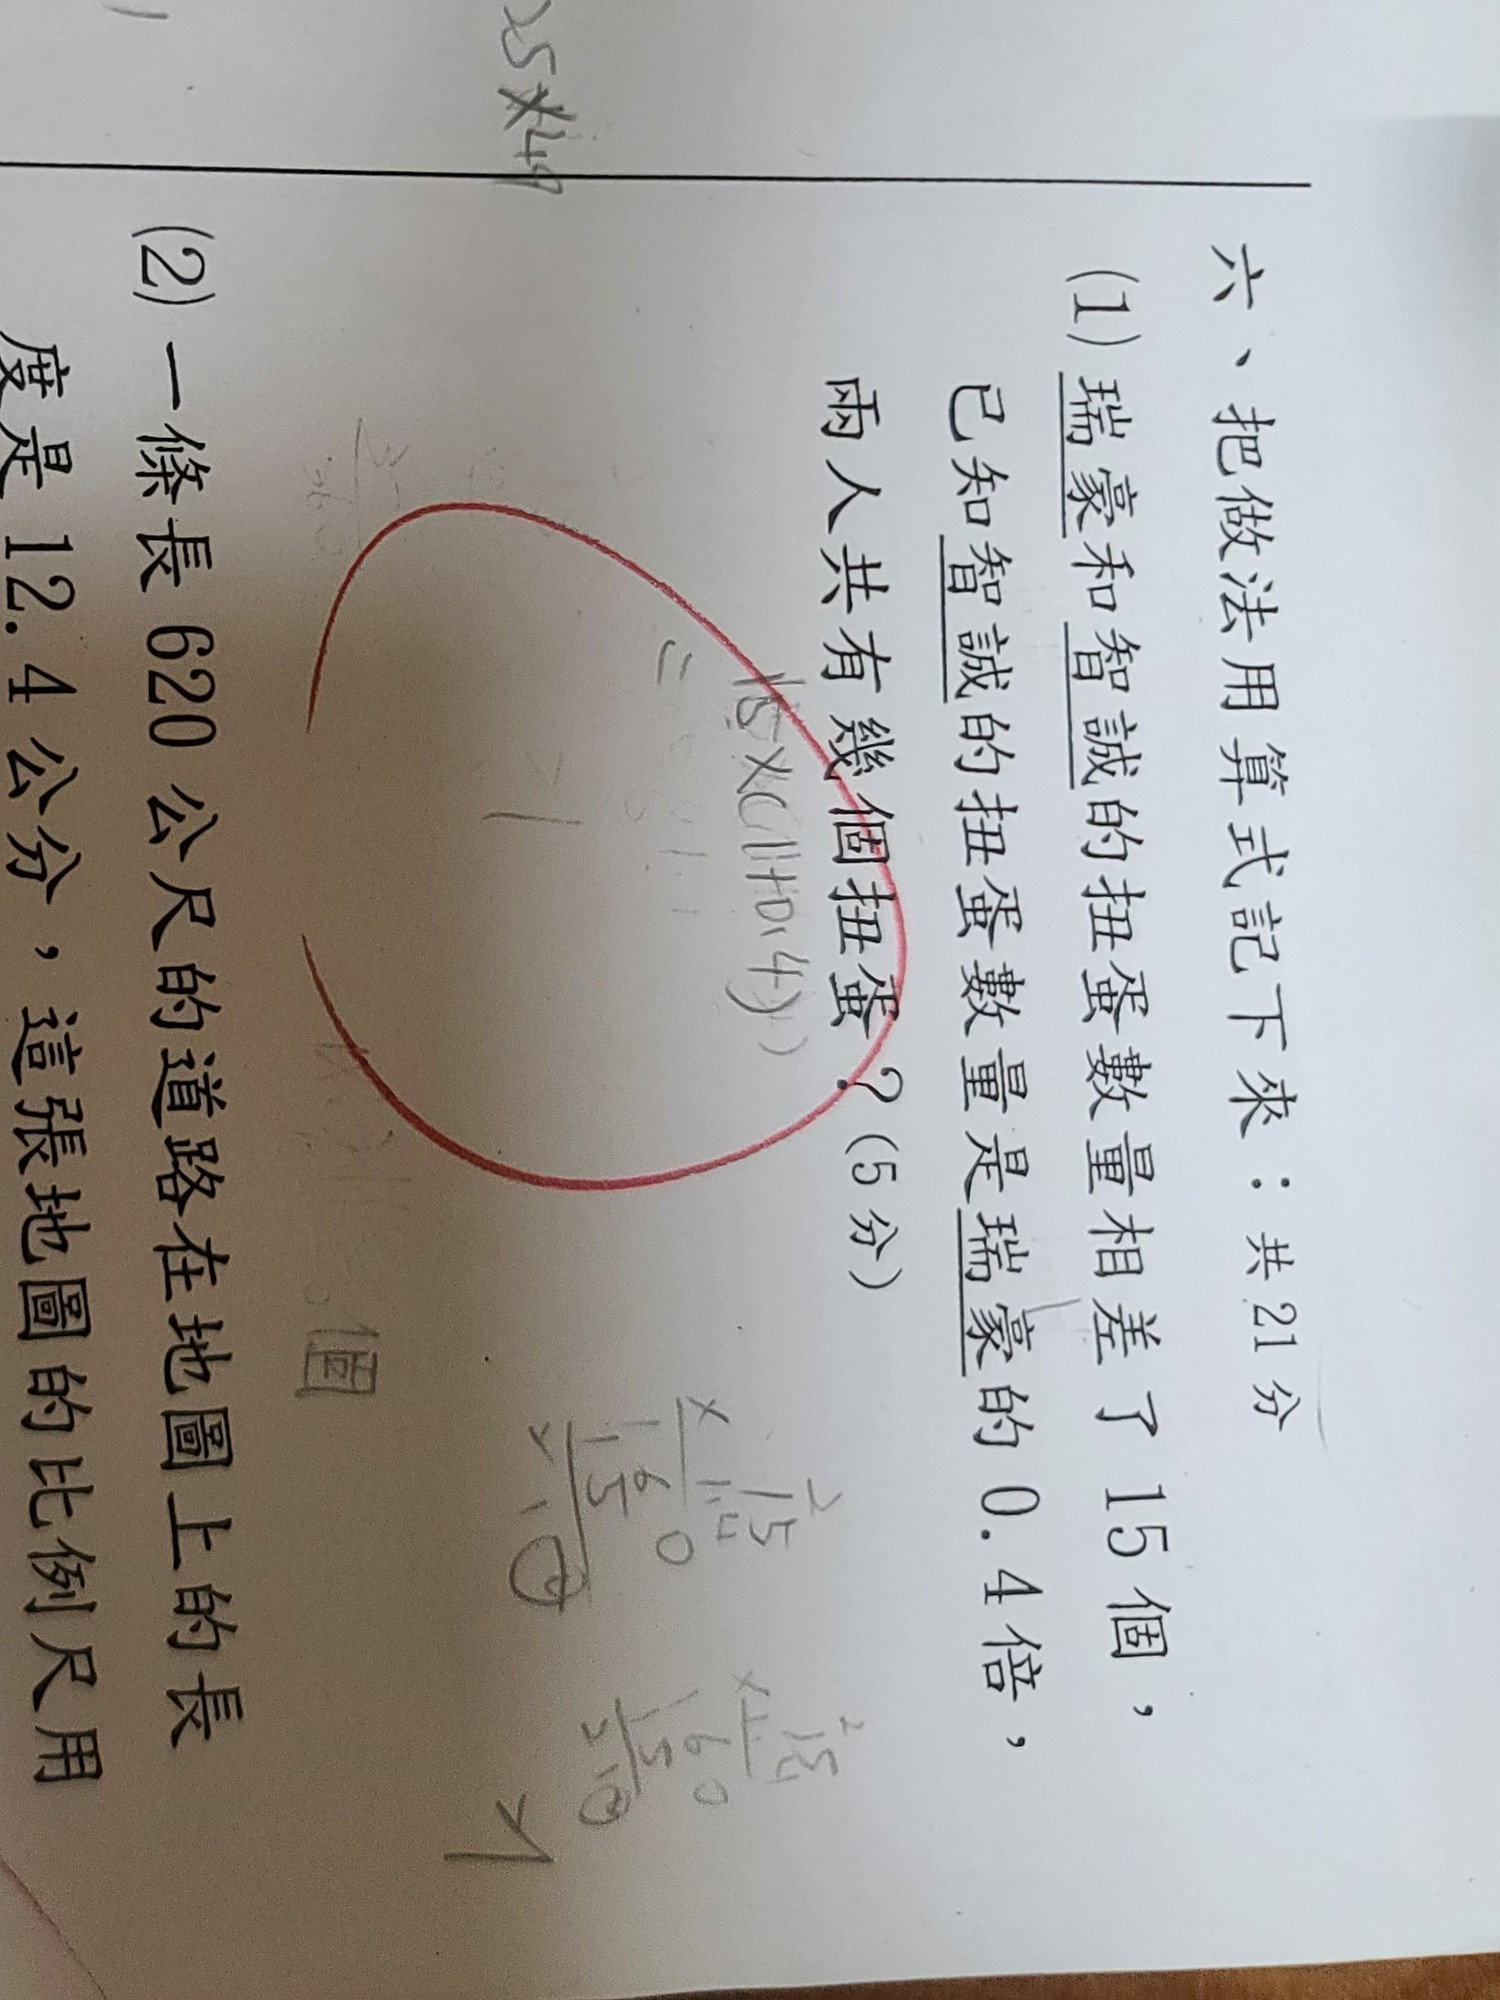 25×49
六、把做法用算式記下來：共21分
(1) 瑞豪和智誠的扭蛋數量相差了15個，
已知智誠的扭蛋數量是瑞豪的0.4倍，
兩人共有幾個扭蛋？(5分)
15×(1+0.4)
=
2
15
×1.4
60
15
21.0
2
15
×1.4
60
15
21.0
個
(2) 一條長620公尺的道路在地圖上的長
度是12.4公分，這張地圖的比例尺用